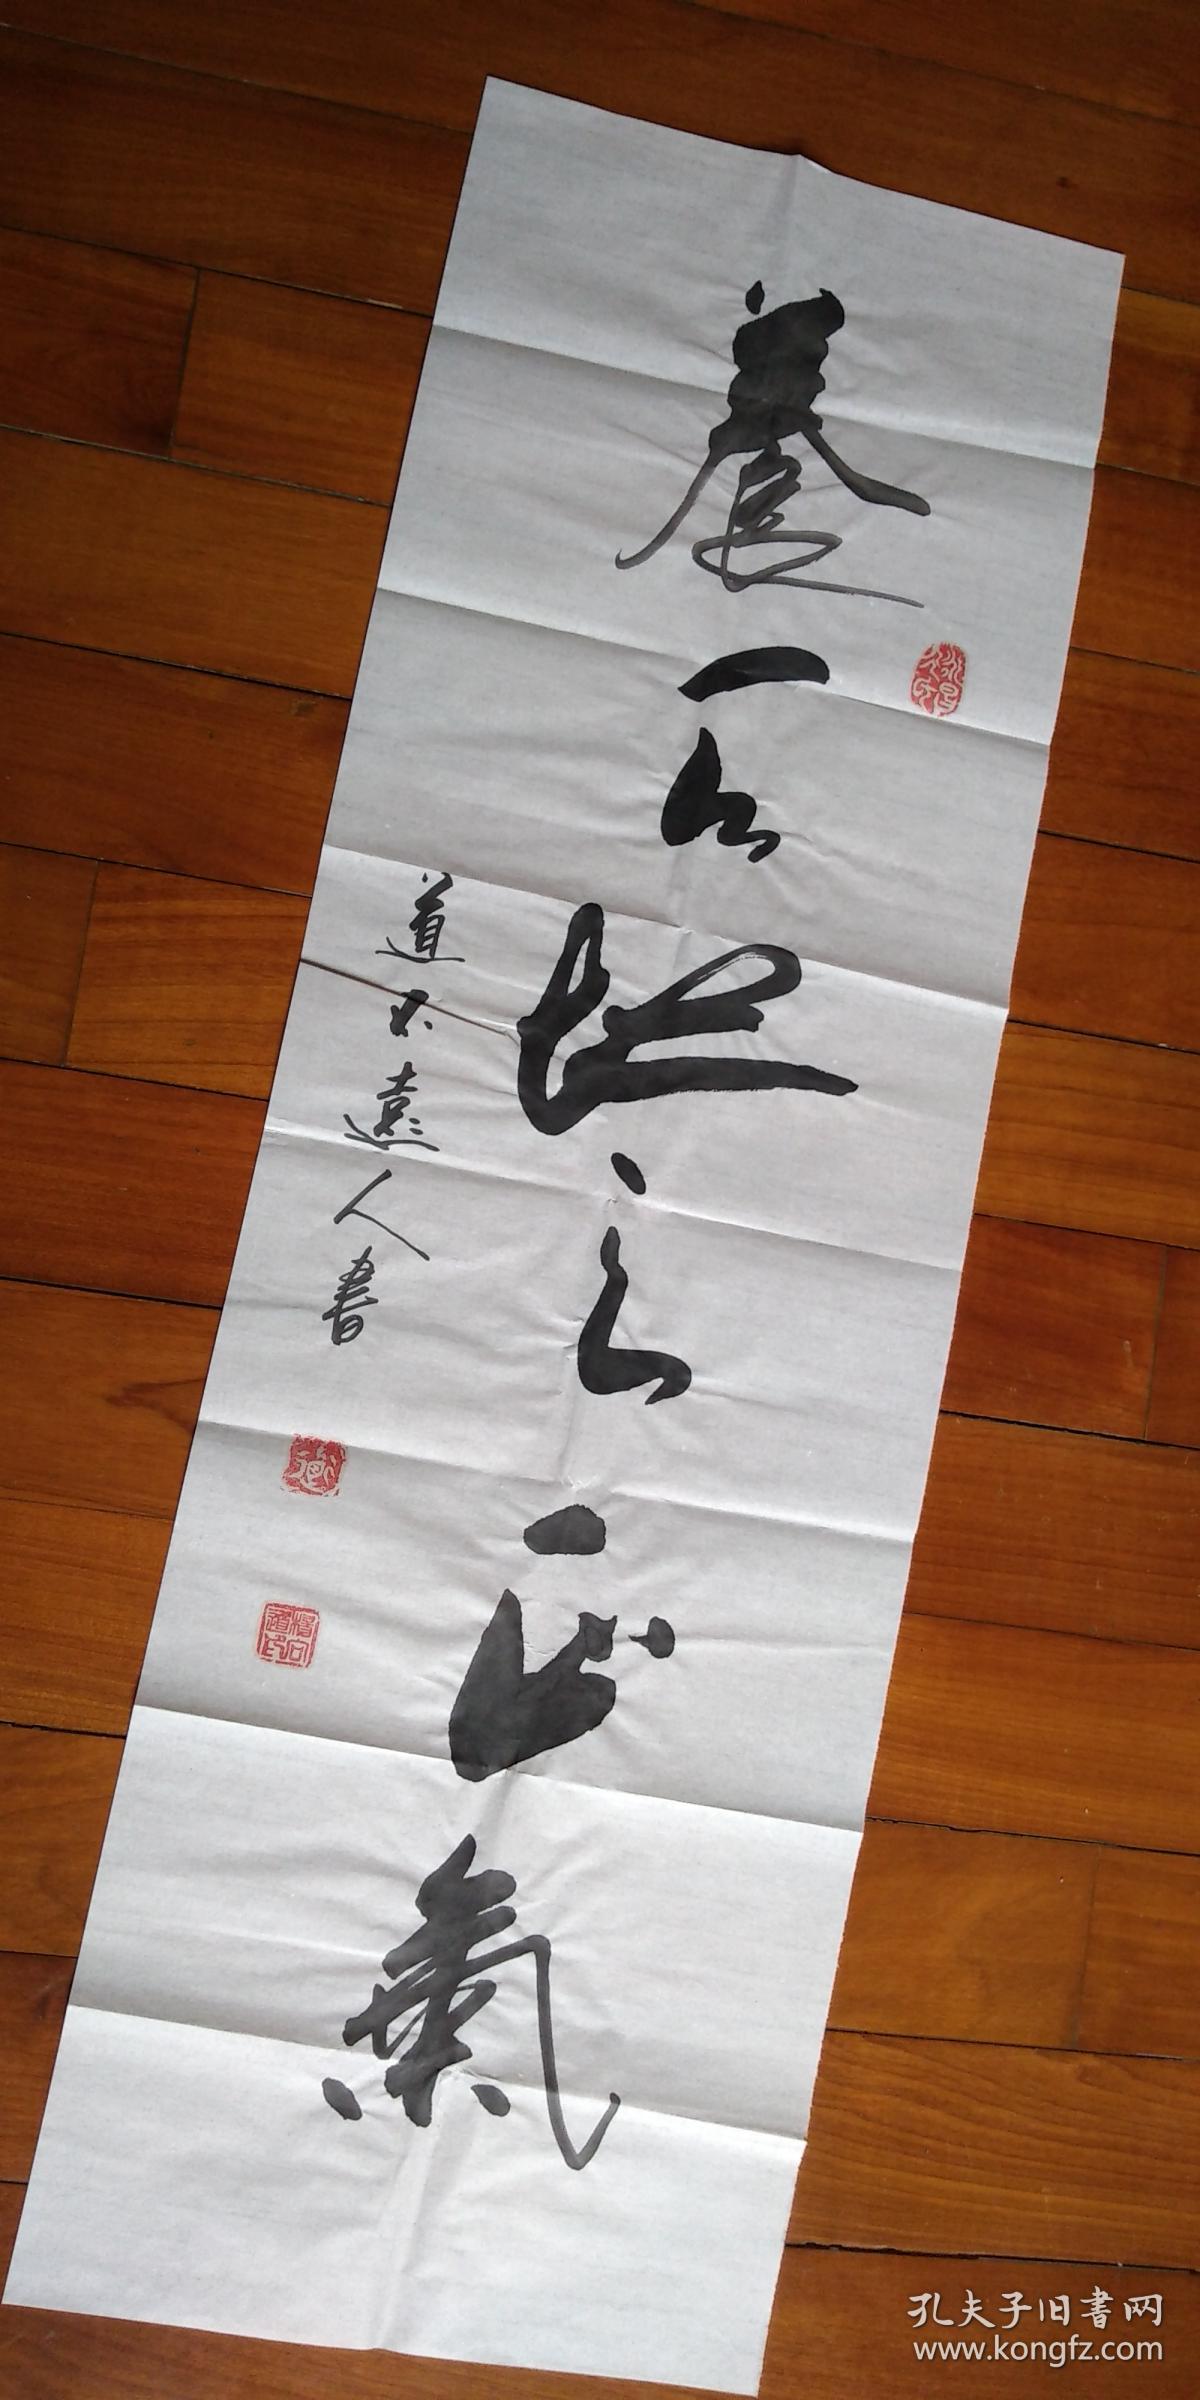 養天地之正氣
道不遠人書
孔夫子旧書网
www.kongfz.com